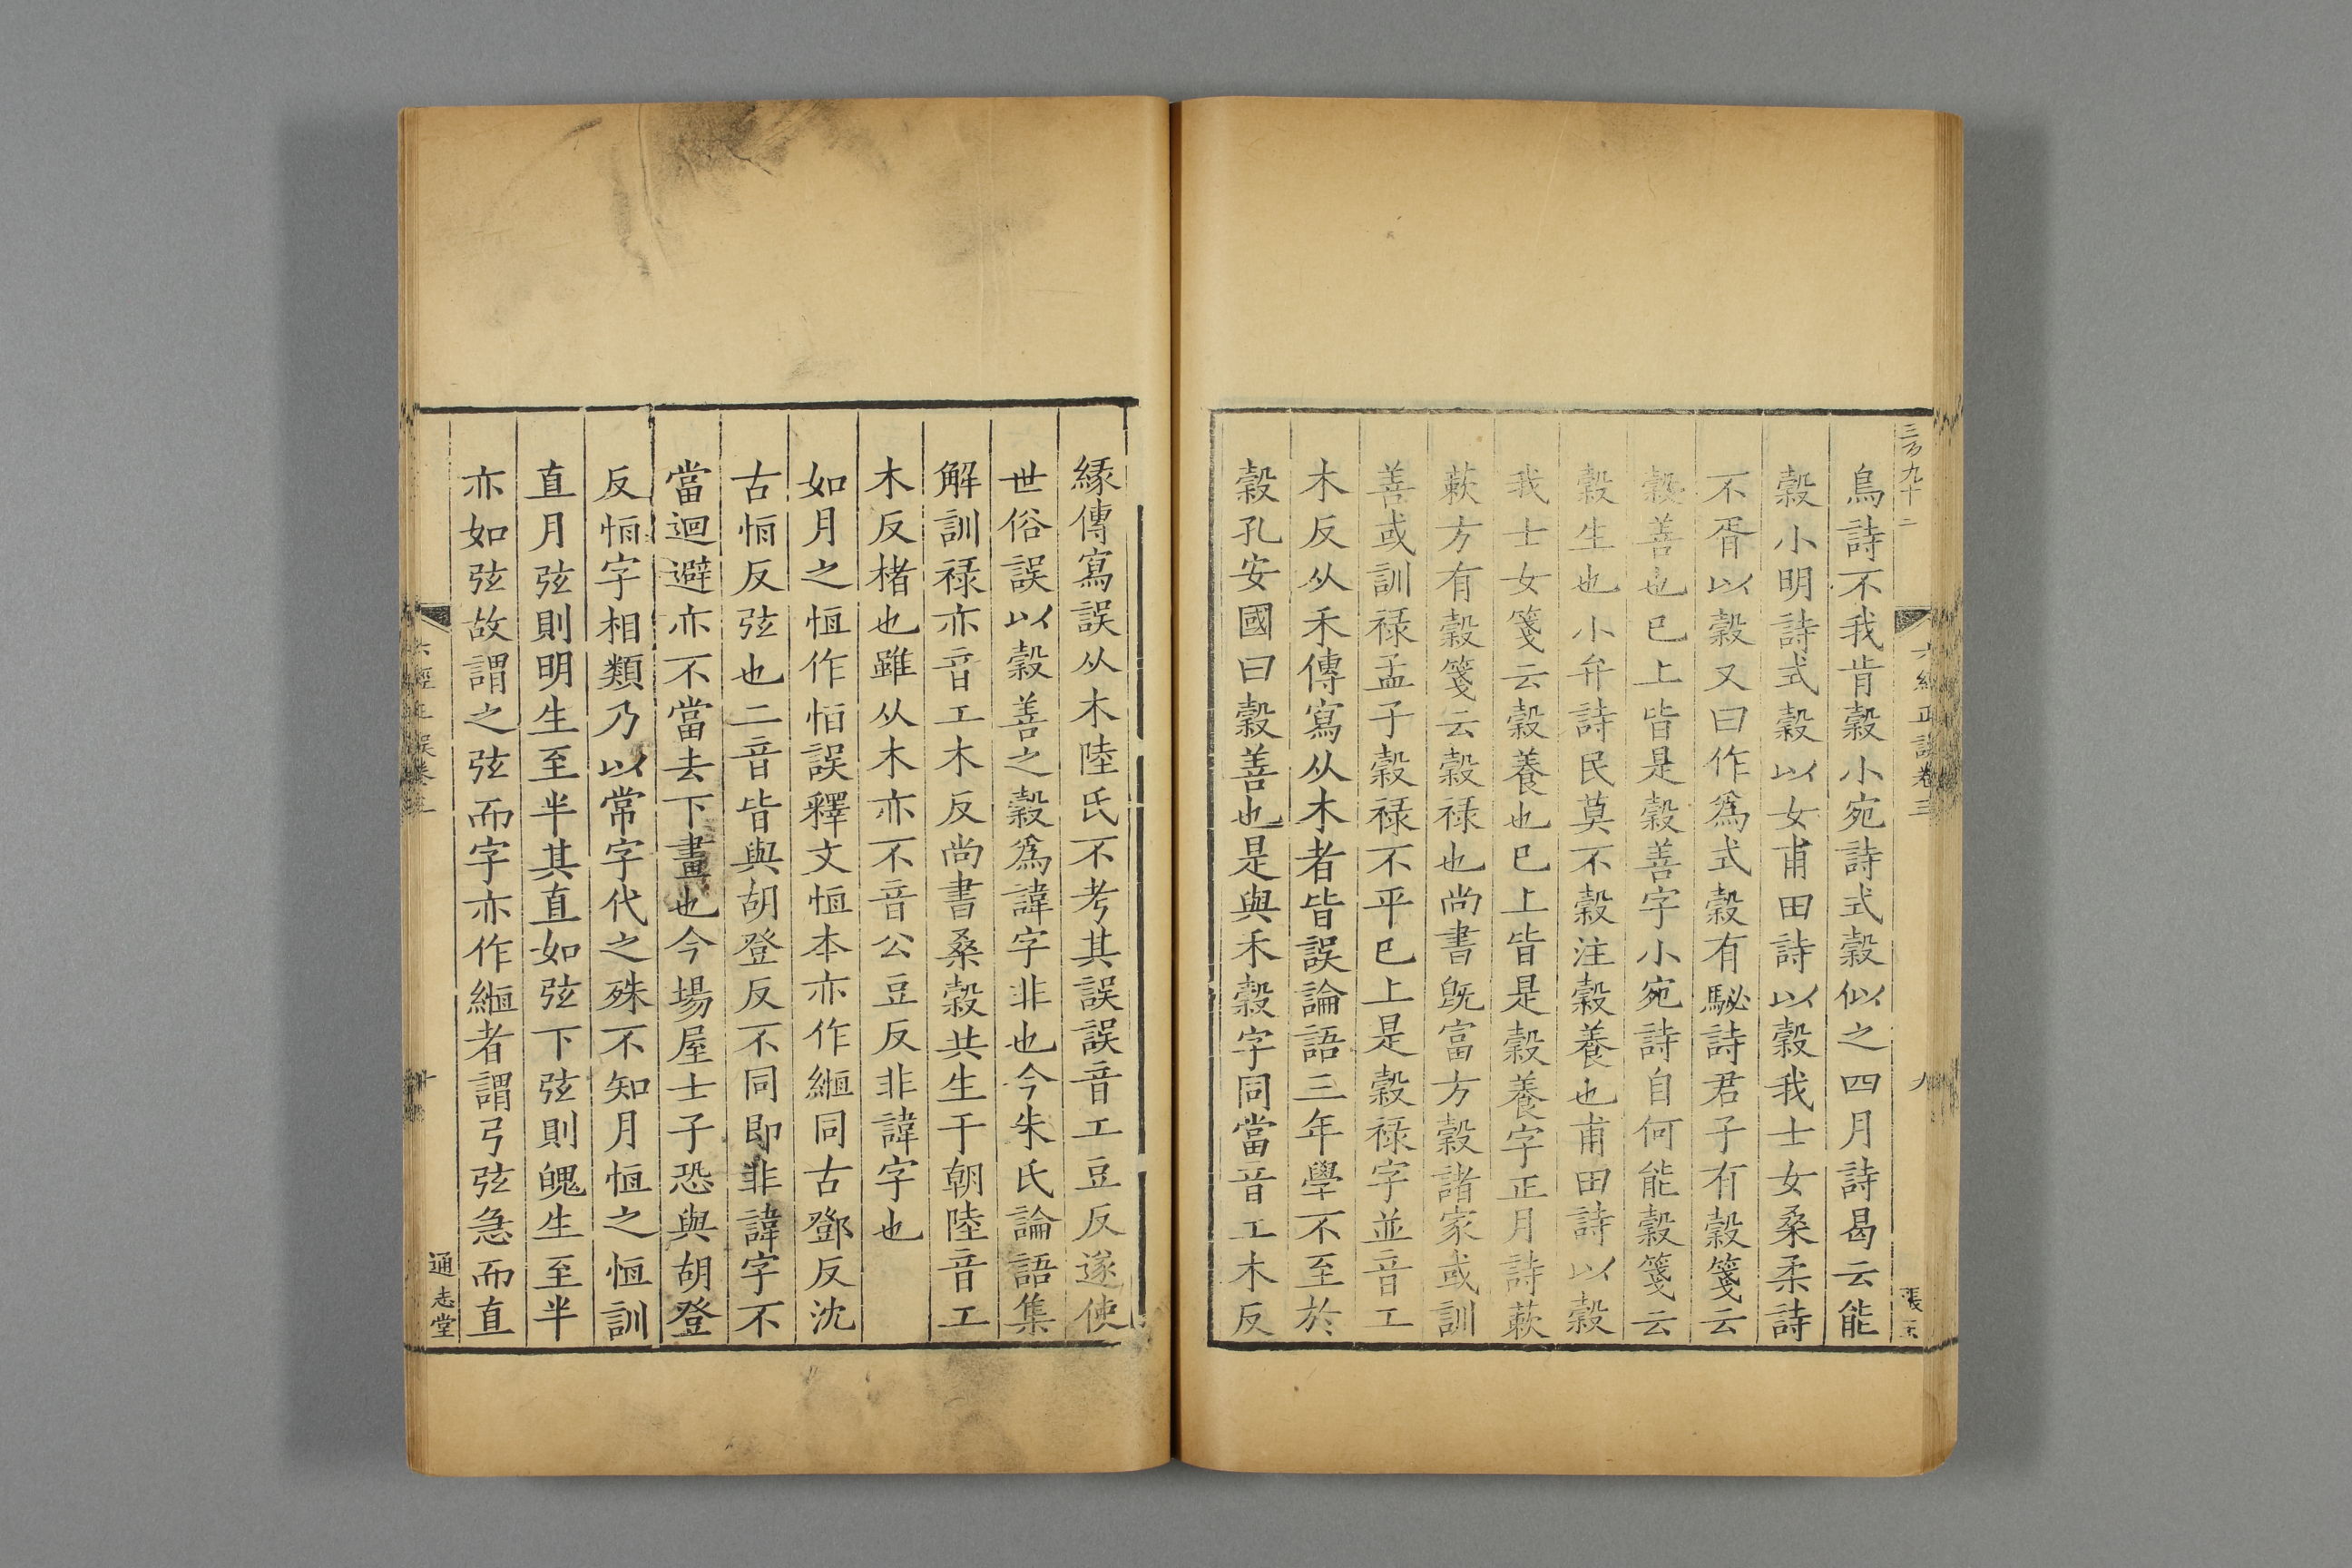 三百九十二
六經正誤卷三
九
張玉
鳥詩不我肯穀小宛詩式穀似之四月詩曷云能
穀小明詩式穀以女甫田詩以穀我士女桑柔詩
不胥以穀又曰作爲式穀有駜詩君子有穀箋云
穀善也巳上皆是穀善字小宛詩自何能穀箋云
穀生也小弁詩民莫不穀注穀養也甫田詩以穀
我士女箋云穀養也巳上皆是穀養字正月詩蔌
蔌方有穀箋云穀禄也尚書旣富方穀諸家或訓
善或訓禄孟子穀禄不平巳上是穀禄字並音工
木反从禾傳寫从木者皆誤論語三年學不至於
穀孔安國曰穀善也是與禾穀字同當音工木反
縁傳寫誤从木陸氏不考其誤誤音工豆反遂使
世俗誤以穀善之穀爲諱字非也今朱氏論語集
解訓禄亦音工木反尚書桑榖共生于朝陸音工
木反楮也雖从木亦不音公豆反非諱字也
如月之恒作恒誤釋文恒本亦作縆同古鄧反沈
古恒反弦也二音皆與胡登反不同即非諱字不
當迴避亦不當去下畫也今場屋士子恐與胡登
反恒字相類乃以常字代之殊不知月恒之恒訓
直月弦則明生至半其直如弦下弦則魄生至半
亦如弦故謂之弦而字亦作縆者謂弓弦急而直
六經正誤卷三
十
通志堂